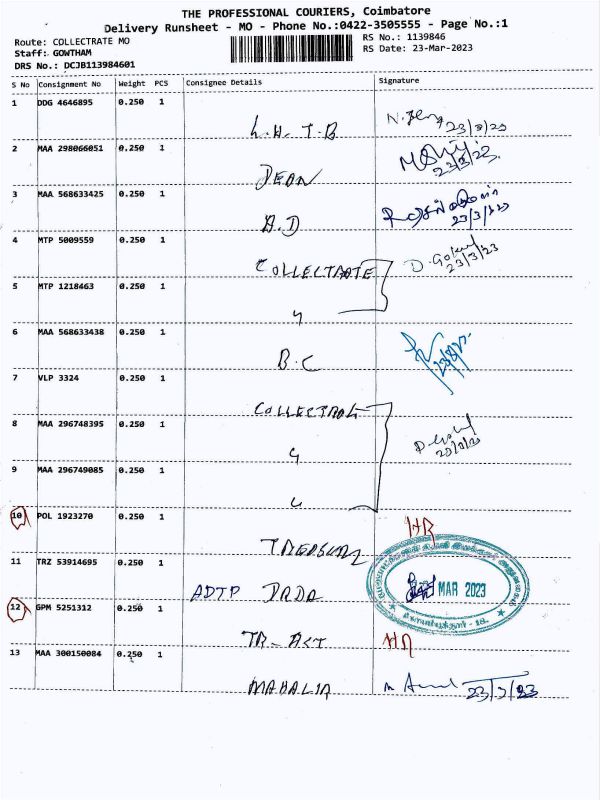 THE PROFESSIONAL COURIERS, Coimbatore
Delivery Runsheet - MO - Phone No.:0422-3505555 - Page No.:1
Route: COLLECTRATE MO
RS No.: 1139846
Staff: GOWTHAM
RS Date: 23-Mar-2023
DRS No.: DCJB113984601
S No Consignment No Weight PCS Consignee Details Signature
1 DDG 4646895 0.250 1
L.H.T.B 23/3/23
2 MAA 298066051 0.250 1
DEAN
3 MAA 568633425 0.250 1
A.D 23/3/23
4 MTP 5009559 0.250 1
COLLECTRATE D. Gokul 23/3/23
5 MTP 1218463 0.250 1
6 MAA 568633438 0.250 1
B.C
7 VLP 3324 0.250 1
COLLECTRATE
8 MAA 296748395 0.250 1
9 MAA 296749085 0.250 1
10 POL 1923270 0.250 1
TREASURY
11 TRZ 53914695 0.250 1
ADTP DRDA MAR 2023
12 GPM 5251312 0.250 1
13 MAA 300150084 0.250 1
MAHALIR 23/3/23